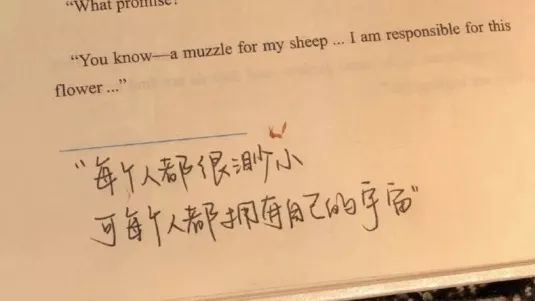 “What promise?”
“You know—a muzzle for my sheep ... I am responsible for this
flower ...”
“每个人都很渺小
可每个人都拥有自己的宇宙”